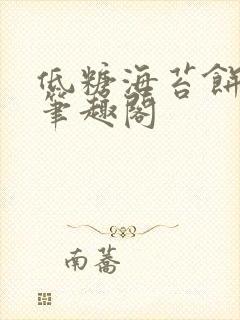 低糖海苔餅
筆趣閣
南蕎